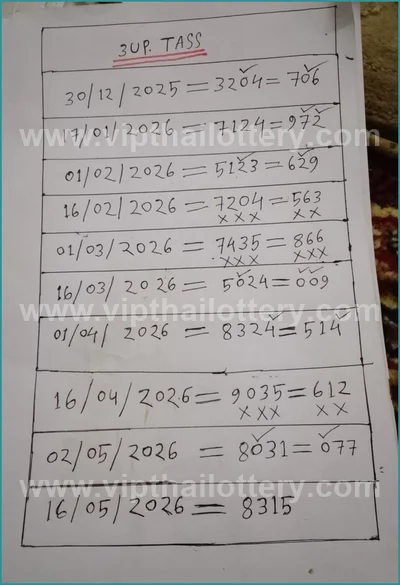 3UP. TASS
30/12/2025 = 3204 = 706
www.vipthailottery.com
17/01/2026 = 7124 = 972
01/02/2026 = 5123 = 629
16/02/2026 = 7204 = 563
xxx xx
www.vipthailottery.com
01/03/2026 = 7435 = 866
xxx xxx
16/03/2026 = 5024 = 009
www.vipthailottery.com
01/04/2026 = 8324 = 514
16/04/2026 = 9035 = 612
xxx xx
www.vipthailottery.com
02/05/2026 = 8031 = 077
www.vipthailottery.com
16/05/2026 = 8315